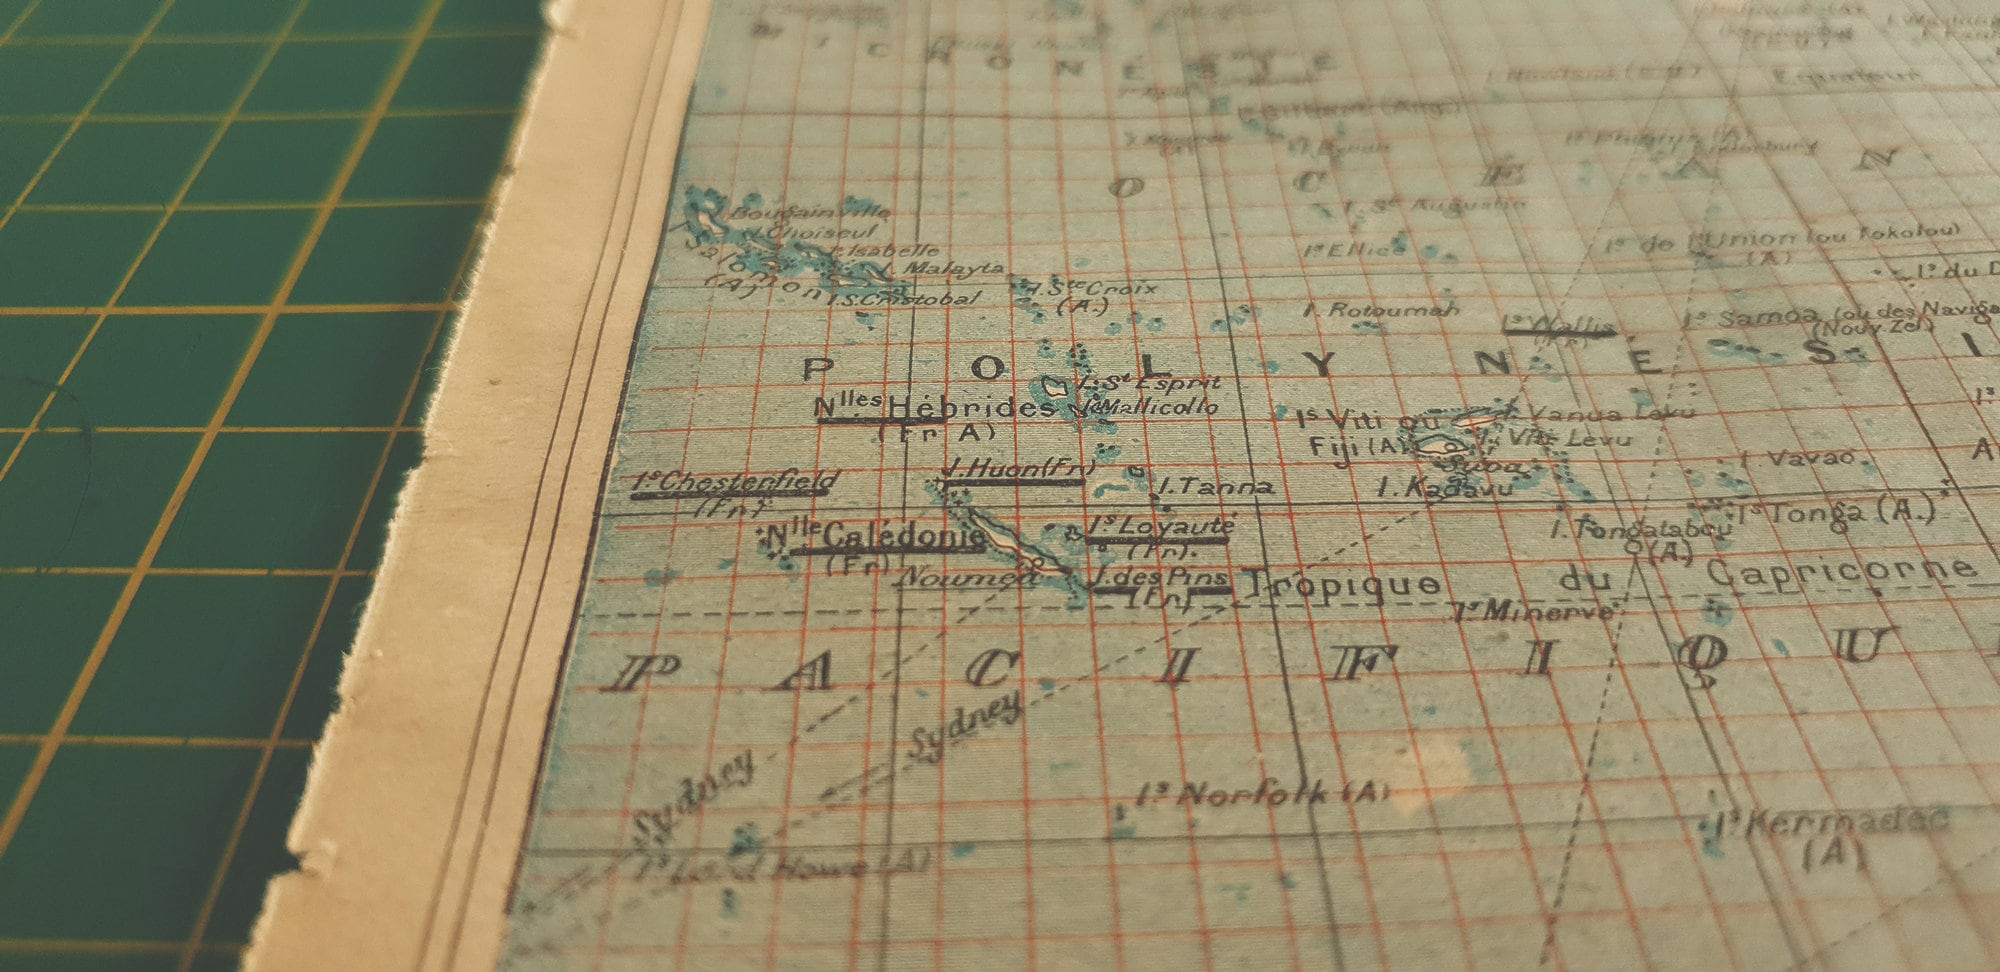 MICRONÉSIE
Equateur
OCÉAN
Bougainville
I. Choiseul
I. Isabelle
Salomon
(A)
I. Malayta
I. S. Cristobal
I. Ste Croix
(A.)
I. St Augustin
Is Ellice
Is de l'Union (ou Tokolou)
(A)
Is du D
I. Rotoumah
Is Wallis
(Fr)
Is Samoa (ou des Naviga
(Nouv. Zel)
POLYNÉSI
I. St Esprit
Nlles Hébrides
I. Mallicollo
(Fr A)
Is Viti ou
Fiji (A)
Vanua Levu
Viti Levu
Suva
I. Kadavu
Is Chesterfield
(Fr)
I. Huon (Fr)
I. Tanna
I. Vavao
Nlle Calédonie
(Fr)
Is Loyauté
(Fr).
Nouméa
I. des Pins
(Fr)
I. Tongatabou
(A)
Is Tonga (A.)
Tropique du Capricorne
Is Minerve
PACIFIQU
Sydney
Sydney
Is Norfolk (A)
Is Lord Howe (A)
Is Kermadec
(A)